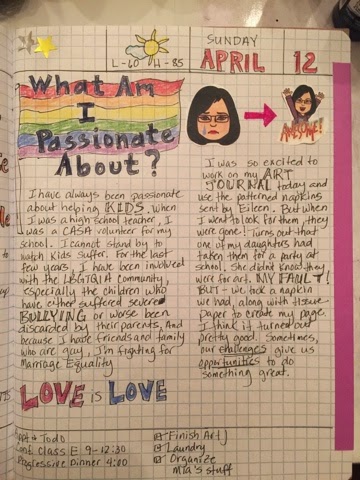 SUNDAY
L-60 H-85
APRIL 12
What Am
I
Passionate
About?
AWESOME!
I have always been passionate
about helping KIDS. When
I was a high school teacher, I
was a CASA volunteer for my
school. I cannot stand by to
watch Kids suffer. For the last
few years, I have been involved
with the LBGTQIA Community,
especially the children who
have either suffered severe
BULLYING or worse been
discarded by their parents, And
because I have friends and family
who are gay, I'm fighting for
Marriage Equality
LOVE IS LOVE
I was so excited to
work on my ART
JOURNAL today and
use the patterned napkins
sent by Eileen. But when
I went to look for them, they
were gone! Turns out that
one of my daughters had
taken them for a party at
school. She didn't know they
were for art. MY FAULT!
BUT - we took a napkin
we had, along with tissue
paper to create my page.
I think it turned out
pretty good. Sometimes,
our challenges give us
opportunities to do
something great.
Appt & Todo
Class E 9-12:30
Progressive Dinner 4:00
Finish Art J
Laundry
Organize
Mia's stuff